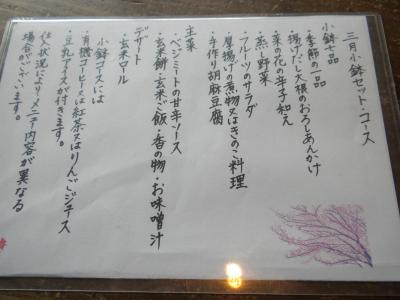 三月小鉢セット・コース
小鉢七品
・季節の一品
・揚げだし大根のおろしあんかけ
・菜の花の辛子和え
・蒸し野菜
・フルーツのサラダ
・厚揚げの煮物又はきのこ料理
・手作り胡麻豆腐
主菜
・ベジミートの甘辛ソース
・玄米餅・玄米ご飯・香の物・お味噌汁
デザート
・玄米ロール
小鉢コースには
・有機コーヒー又は紅茶又はりんごジュース
・豆乳アイスが付きます。
仕入状況によりメニュー内容が異なる
場合がございます。